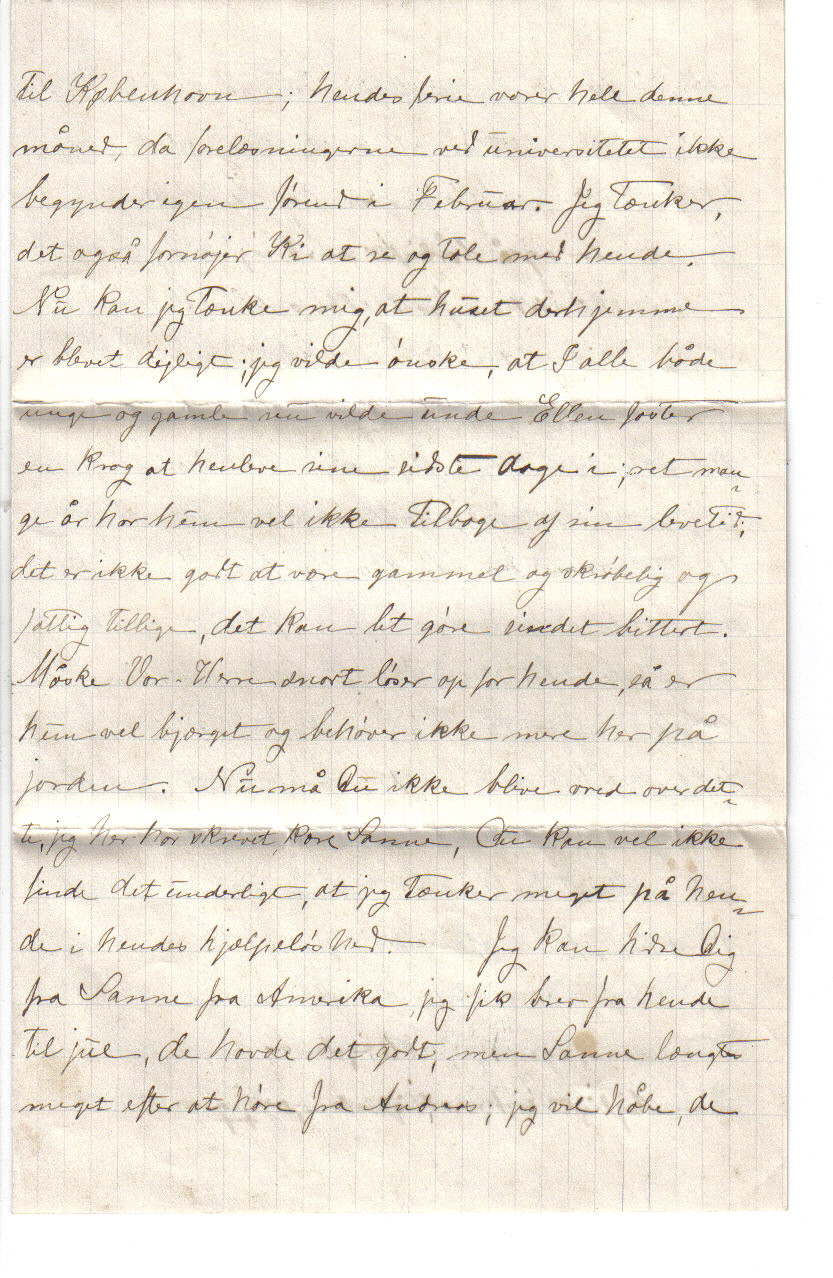 til København; hendes ferie varer hele denne
måned, da forelæsningerne ved universitetet ikke
begynder igen førend i Februar. Jeg tænker,
det også fornøjer Ki at se og tale med hende.
Nu kan jeg tænke mig, at huset derhjemme
er blevet dejligt; jeg vilde ønske, at I alle både
unge og gamle nu vilde unde Ellen faster
en krog at henleve sine sidste dage i; ret man-
ge år har hun vel ikke tilbage af sin levetid;
det er ikke godt at være gammel og skrøbelig og
fattig tillige, det kan let göre sindet bittert.
Måske Vor-Herre snart löser op for hende, så er
hun vel bjærget og behöver ikke mere her på
jorden. Nu må Du ikke blive vred over det-
te, jeg her har skrevet, kære Sanne, Du kan vel ikke
finde det underligt, at jeg tænker meget på hen-
de i hendes hjælpelöshed. Jeg kan hilse Dig
fra Sanne fra Amerika, jeg fik brev fra hende
til jul, de havde det godt, men Sanne længtes
meget efter at höre fra Andreas; jeg vil håbe, de